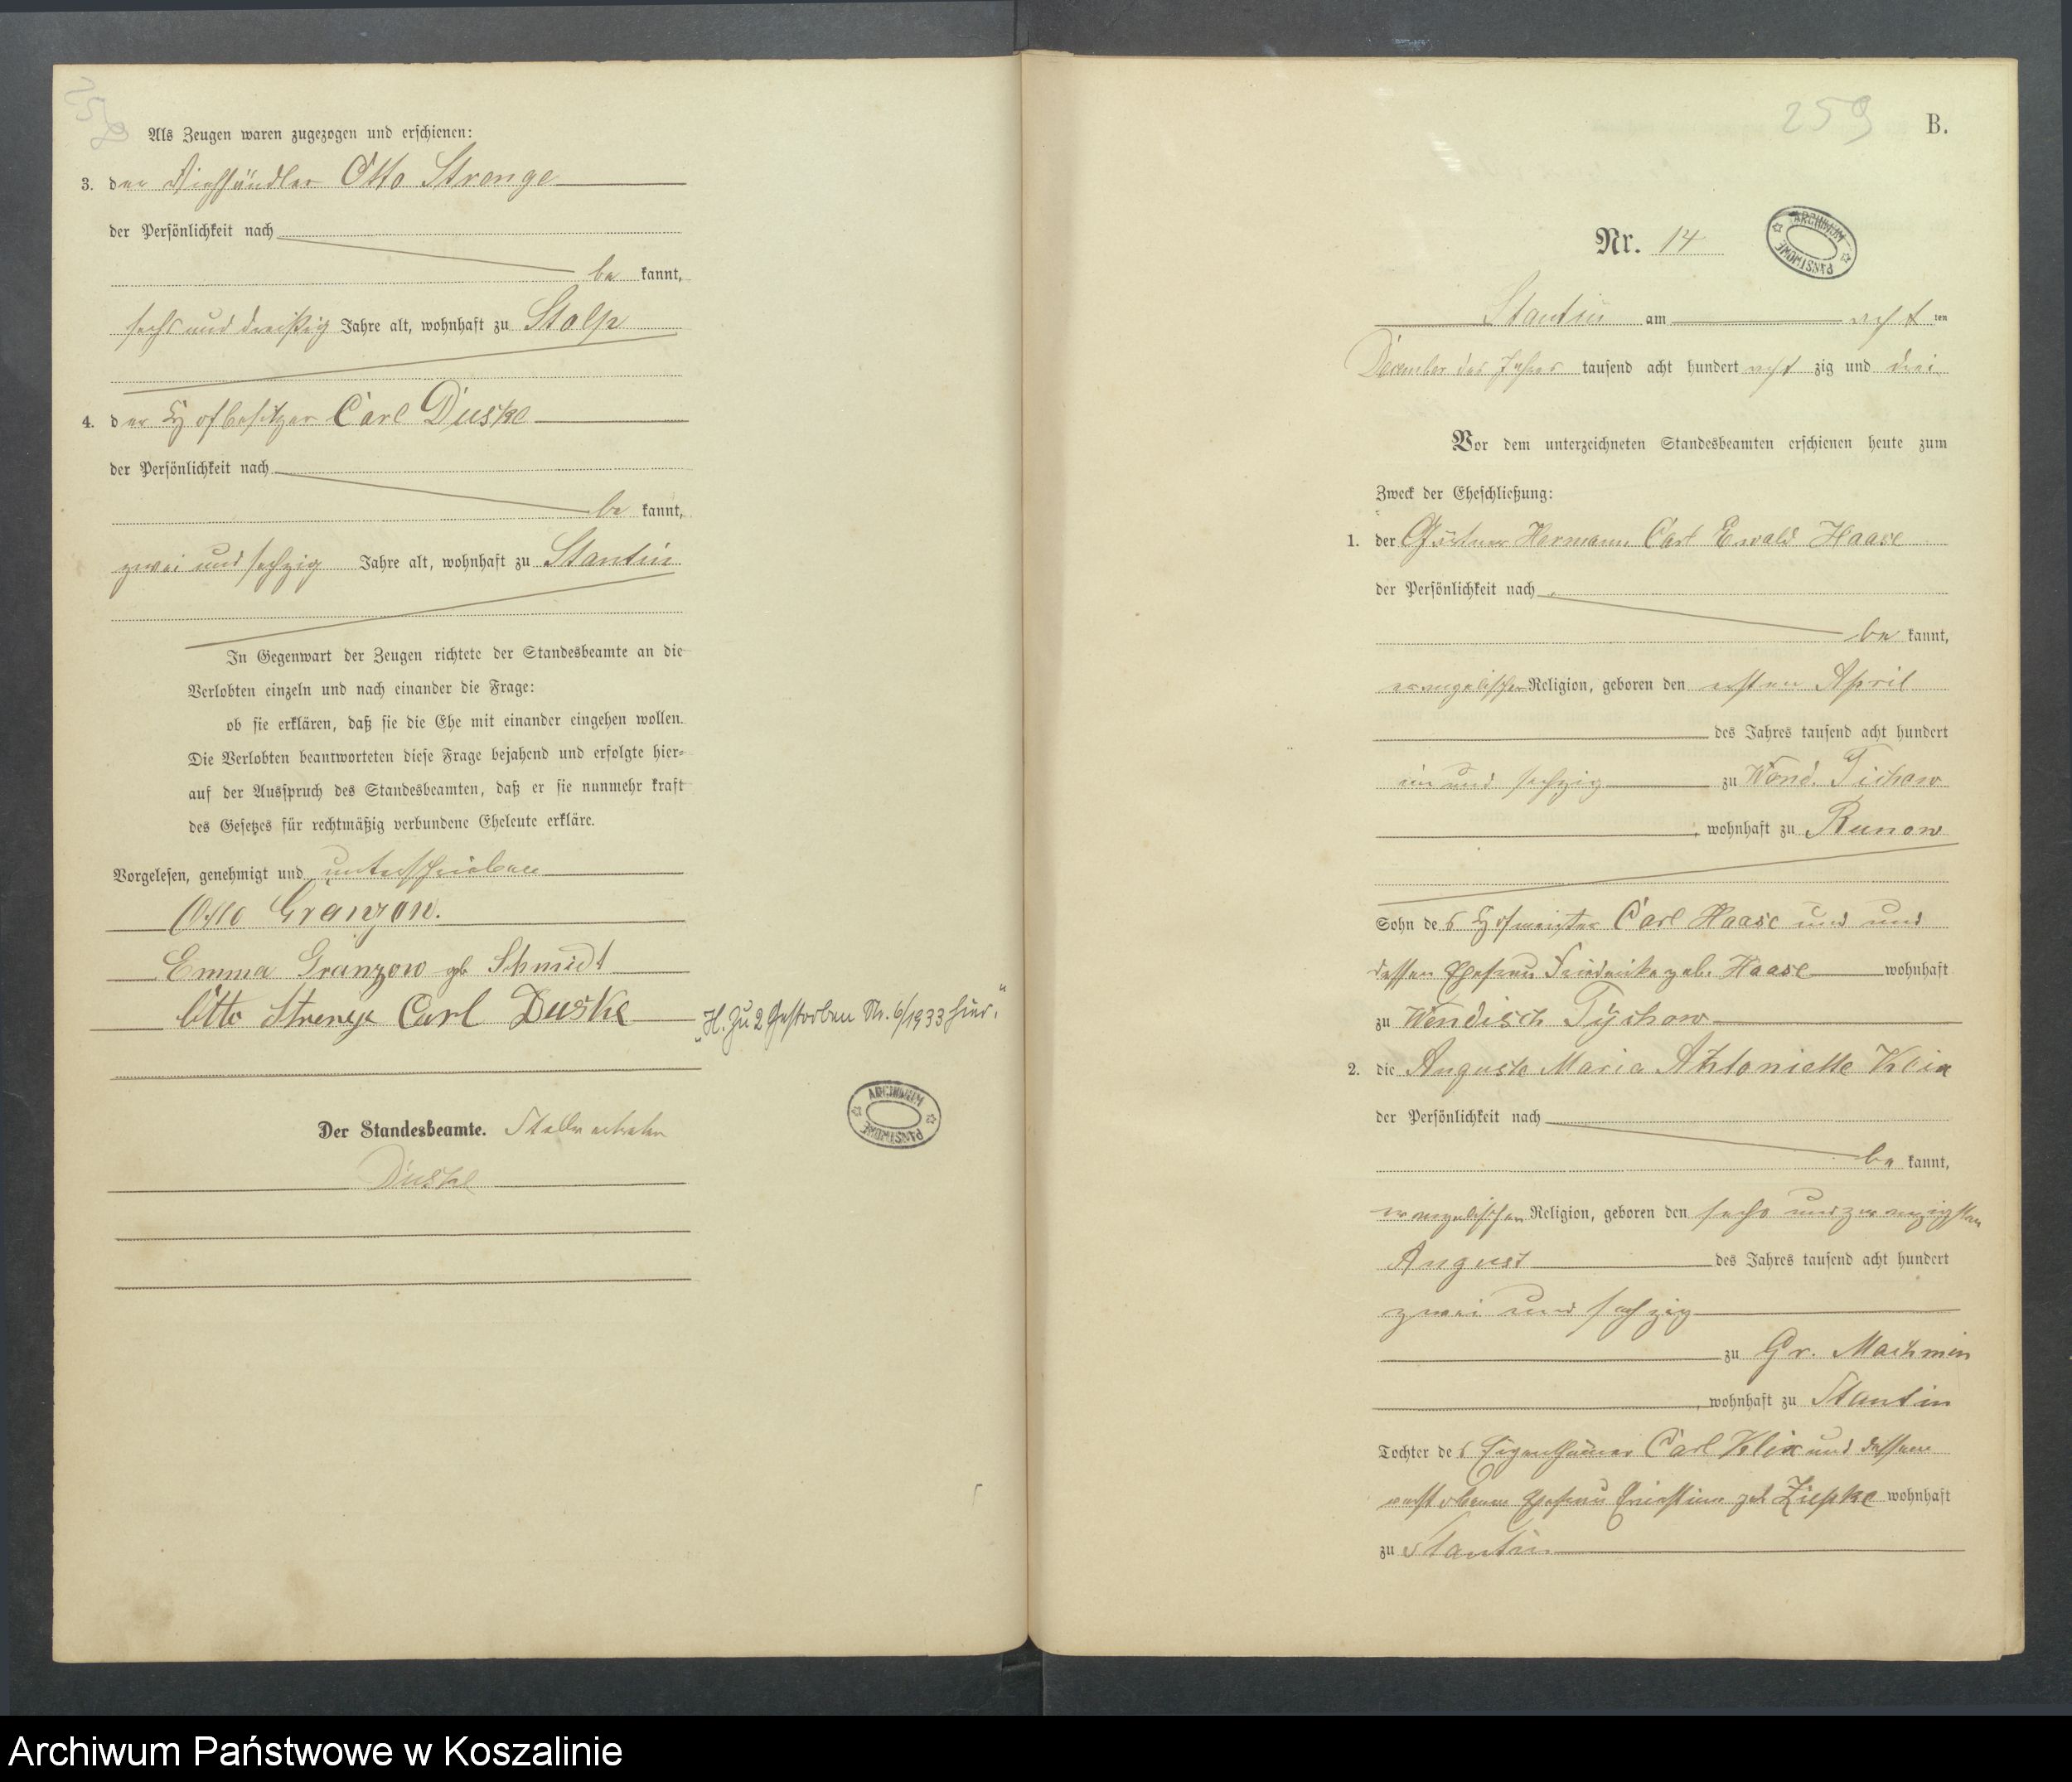 Als Zeugen waren zugezogen und erschienen:
3. der Viehhändler Otto Strenge
der Persönlichkeit nach
be kannt,
sechs und dreißig Jahre alt, wohnhaft zu Stolp
4. der Hofbesitzer Carl Duske
der Persönlichkeit nach
be kannt,
zwei und sechzig Jahre alt, wohnhaft zu Stantin
In Gegenwart der Zeugen richtete der Standesbeamte an die
Verlobten einzeln und nach einander die Frage:
ob sie erklären, daß sie die Ehe mit einander eingehen wollen.
Die Verlobten beantworteten diese Frage bejahend und erfolgte hier-
auf der Ausspruch des Standesbeamten, daß er sie nunmehr kraft
des Gesetzes für rechtmäßig verbundene Eheleute erkläre.
Vorgelesen, genehmigt und unterschrieben
Otto Granzow.
Emma Granzow gb Schmidt
Otto Strenge Carl Duske
"H. Zu 2 Gestorben Nr. 6/1933 hier."
Der Standesbeamte.
Duske
ARCHIWUM PAŃSTWOWE
259
B.
Nr. 14
ARCHIWUM PAŃSTWOWE
Stantin am acht ten
Dezember des Jahres tausend acht hundert acht zig und drei
Vor dem unterzeichneten Standesbeamten erschienen heute zum
Zweck der Eheschließung:
1. der Gärtner Hermann Carl Ewald Haase
der Persönlichkeit nach
be kannt,
evangelischer Religion, geboren den ersten April
des Jahres tausend acht hundert
ein und sechzig zu Wend. Tichow
, wohnhaft zu Runow
Sohn des Hofmeister Carl Haase und und
dessen Ehefrau Friederike geb. Haase wohnhaft
zu Wendisch Tychow
2. die Auguste Maria Antoniette Klix
der Persönlichkeit nach
be kannt,
evangelischen Religion, geboren den sechs und zwanzigsten
August des Jahres tausend acht hundert
zwei und sechzig
zu Gr. Machmin
, wohnhaft zu Stantin
Tochter des Eigenthümer Carl Klix und dessen
verstorbenen Ehefrau Christine geb Ziepke wohnhaft
zu Stantin
Archiwum Państwowe w Koszalinie